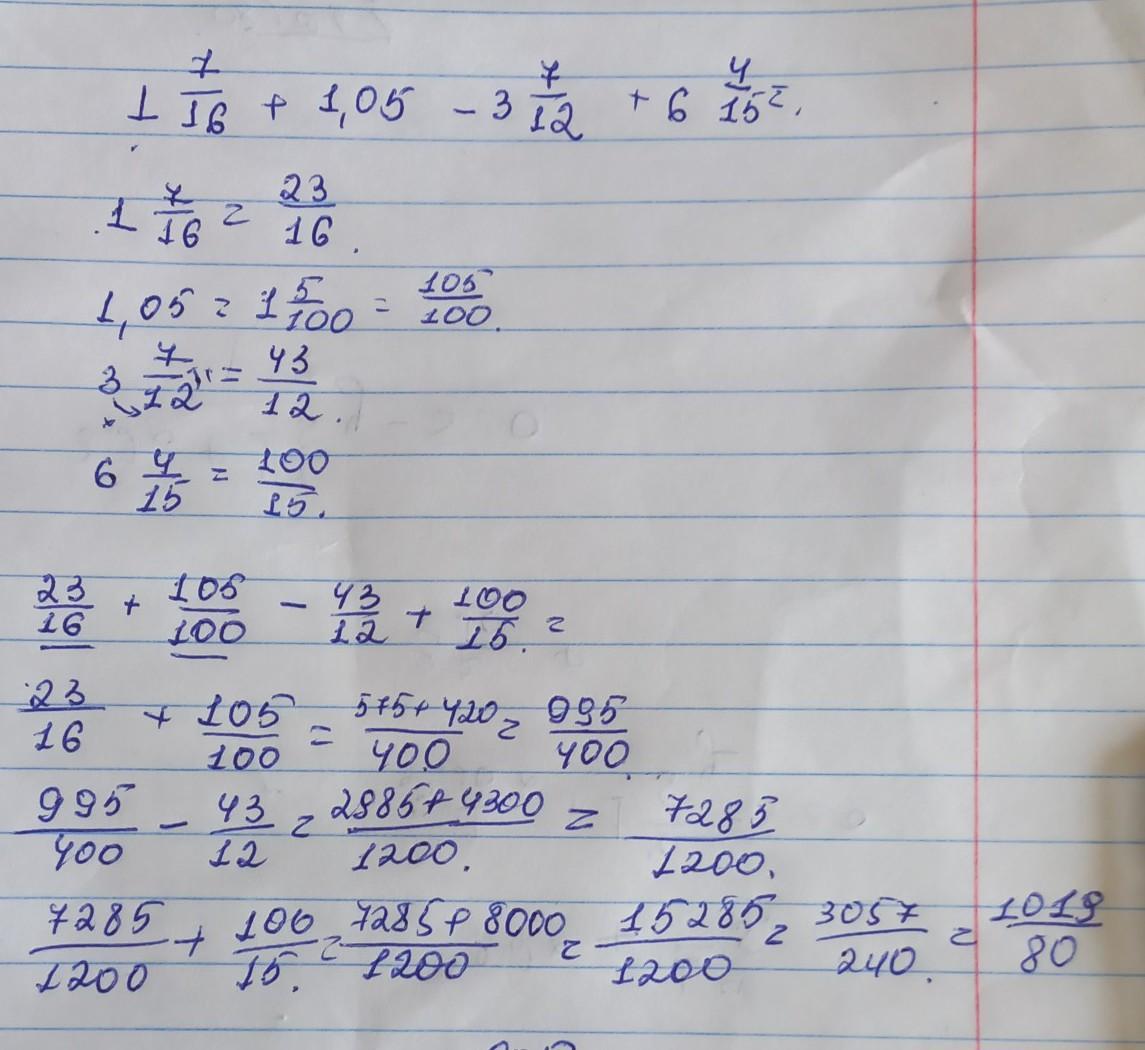 1 7/16 + 1,05 - 3 7/12 + 6 4/15 =.
1 7/16 = 23/16.
1,05 = 1 5/100 = 105/100.
3 7/12 = 43/12.
6 4/15 = 100/15.
23/16 + 105/100 - 43/12 + 100/15. =
23/16 + 105/100 = 575+420/400 = 995/400.
995/400 - 43/12 = 2985+4300/1200. = 7285/1200.
7285/1200 + 100/15. = 7285+8000/1200 = 15285/1200 = 3057/240. = 1019/80